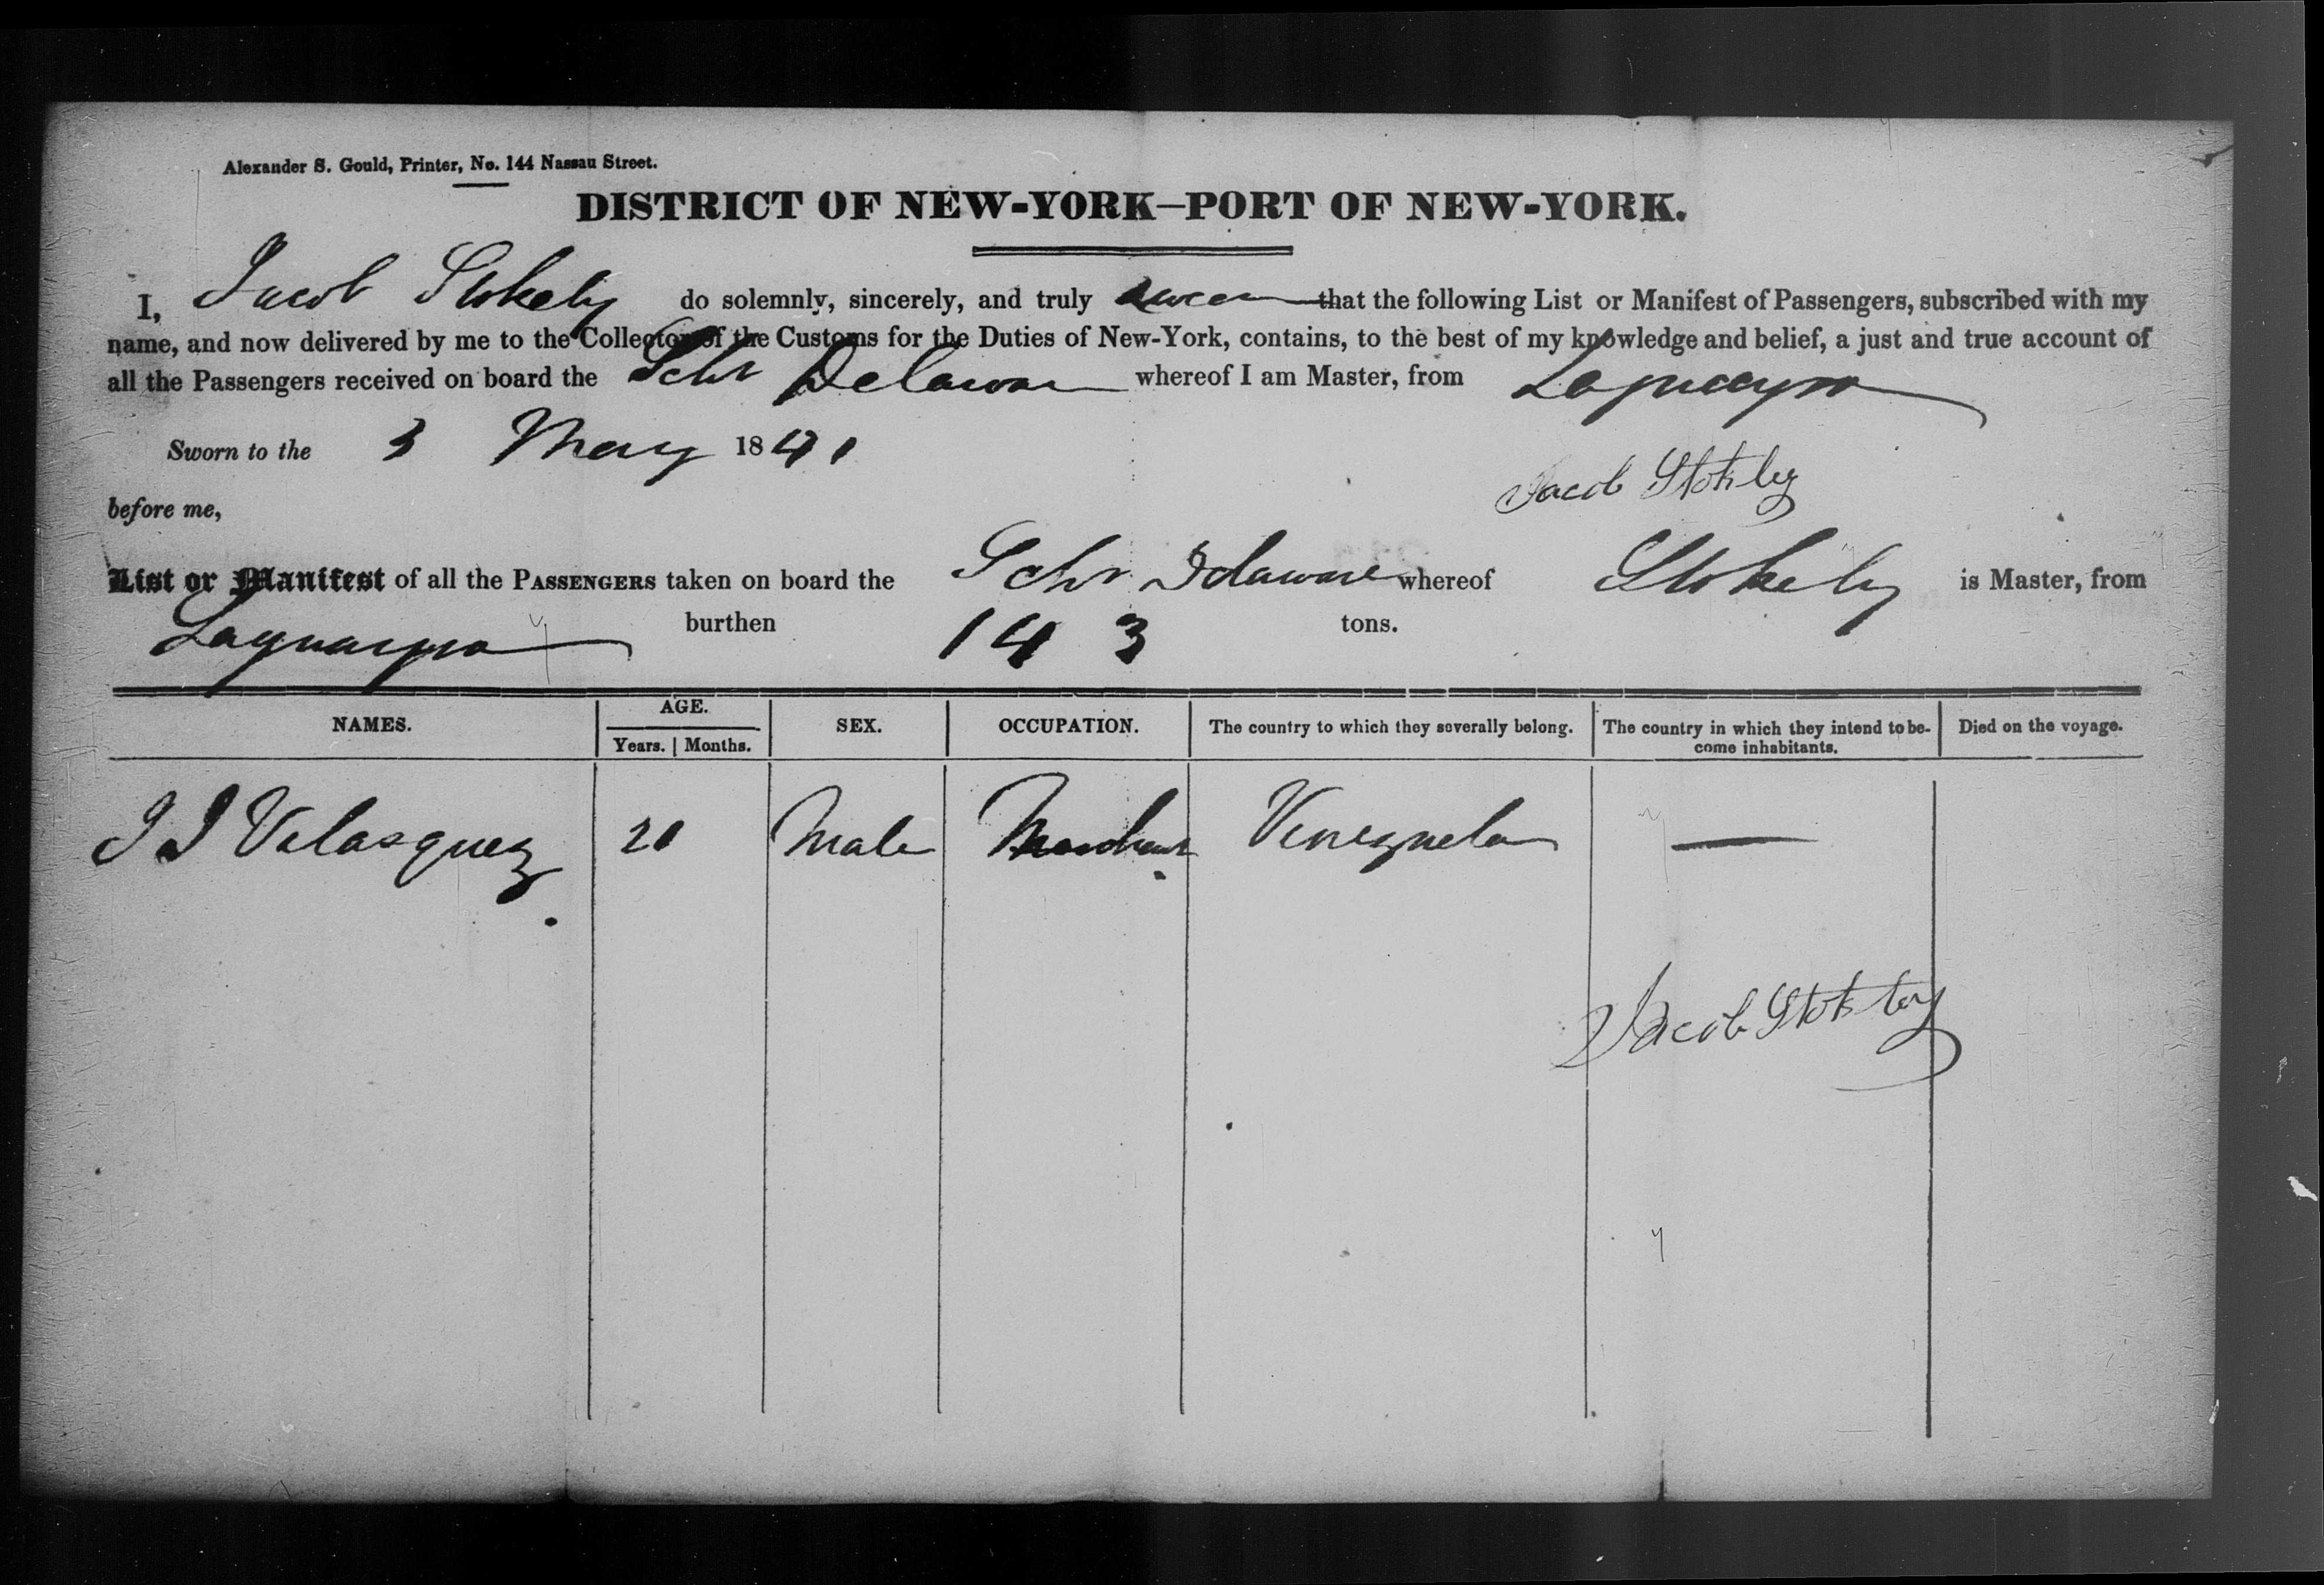 Alexander S. Gould, Printer, No. 144 Nassau Street.
DISTRICT OF NEW-YORK—PORT OF NEW-YORK.
I, Jacob Stokely do solemnly, sincerely, and truly swear that the following List or Manifest of Passengers, subscribed with my
name, and now delivered by me to the Collector of the Customs for the Duties of New-York, contains, to the best of my knowledge and belief, a just and true account of
all the Passengers received on board the Schr Delaware whereof I am Master, from Laguayra
Sworn to the 3 May 1841
Jacob Stokley
before me,
List or Manifest of all the PASSENGERS taken on board the Schr Delaware whereof Stokely is Master, from
Laguayra burthen 143 tons.
NAMES. AGE. Years. Months. SEX. OCCUPATION. The country to which they severally belong. The country in which they intend to be-come inhabitants. Died on the voyage.
J J Velasquez 21 Male Merchant Venezuela —
Jacob Stokley